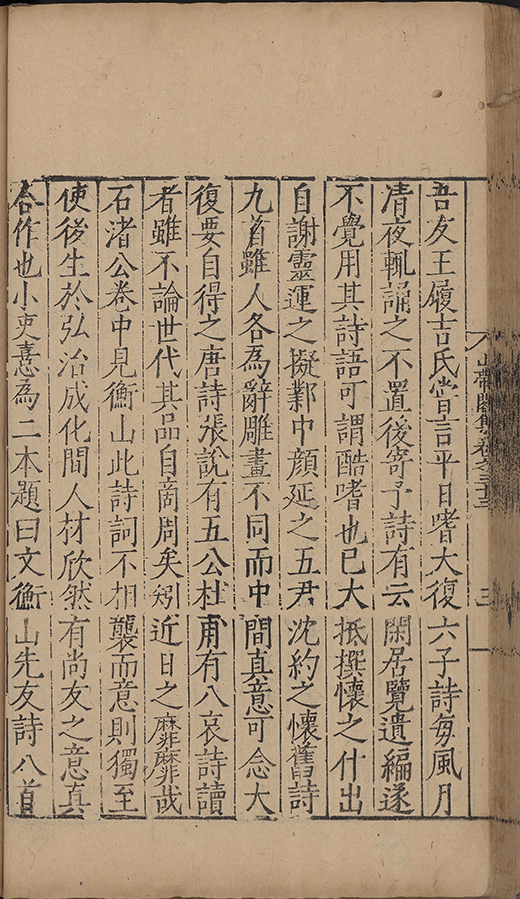 山帶閣集卷之三十三
三
吾友王履吉氏嘗言平日嗜大復六子詩每風月
清夜輒誦之不置後寄予詩有云閑居覽遺編遂
不覺用其詩語可謂酷嗜也已大抵撰懷之什出
自謝靈運之擬鄴中顔延之五君沈約之懷舊詩
九首雖人各為辭雕畫不同而中間真意可念大
復要自得之唐詩張說有五公杜甫有八哀詩讀
者雖不論世代其品自啇周矣矧近日之靡靡哉
石渚公卷中見衡山此詩詞不相襲而意則獨至
使後生於弘治成化間人材欣然有尚友之意真
合作也小吏憙為二本題曰文衡山先友詩八首